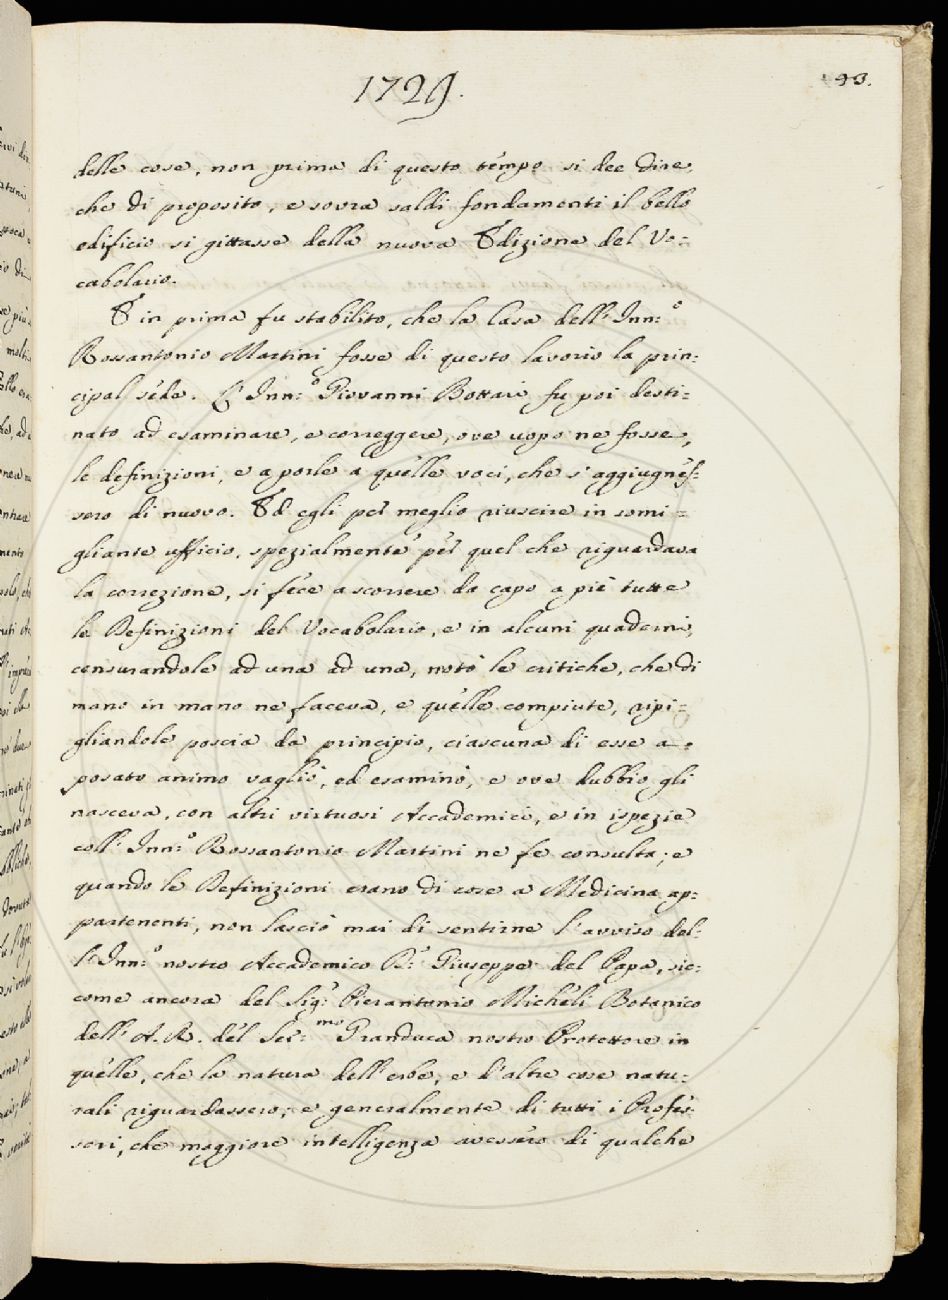 1729.
93.
delle cose, non prima di questo tempo si dee dire,
che di proposito, e sovra saldi fondamenti il bello
edificio si gittasse della nuova Edizione del Vo=
cabolario.
E in prima fu stabilito, che la Casa dell' Inn:o
Rossantonio Martini fosse di questo lavorio la prin=
cipal sede. L' Inn:o Giovanni Bottari fu poi desti=
nato ad esaminare, e correggere, ove uopo ne fosse,
le definizioni, e a porle a quelle voci, che s' aggiugnes=
sero di nuovo. Ed egli per meglio riuscire in somi=
gliante ufficio, spezialmente per quel che riguardava
la correzione, si fece a scorrere da capo a piè tutte
le Definizioni del Vocabolario, e in alcuni quaderni,
censurandole ad una ad una, notò le critiche, che di
mano in mano ne faceva, e quelle compiute, ripi=
gliandole poscia da principio, ciascuna di esse a
posato animo vagliò, ed esaminò, e ove dubbio gli
nasceva, con altri virtuosi Accademici, e in ispezie
coll' Inn:o Rossantonio Martini ne fe consulta; e
quando le Definizioni erano di cose a Medicina ap=
partenenti, non lasciò mai di sentirne l' avviso del=
l' Inn:o nostro Accademico D: Giuseppe del Papa, sic=
come ancora del Sig: Pierantonio Micheli Botanico
dell' A. R. del Ser:mo Granduca nostro Protettore in
quelle, che la natura dell' erbe, e d' altre cose natu=
rali riguardassero; e generalmente di tutti i Profes=
sori, che maggiore intelligenza avessero di qualche